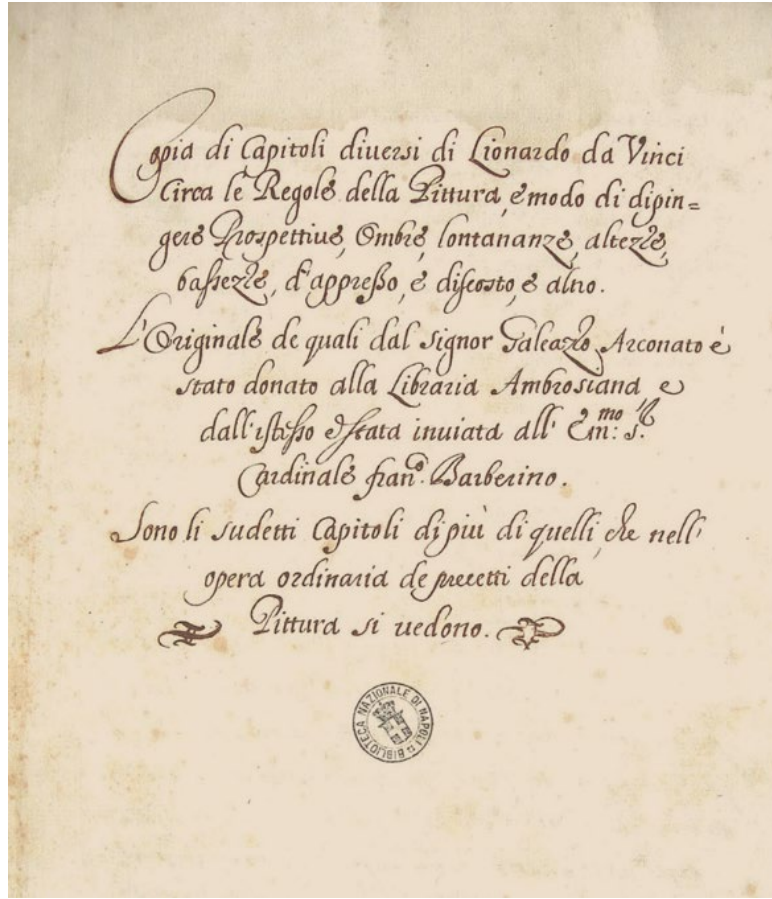 Copia di Capitoli diuersi di Lionardo da Vinci
Circa le Regole della Pittura, e modo di dipin=
gere Prospettiue, Ombre, lontananze, altezze,
bassezze, d'appresso, e discosto, e altro.
L'Originale de quali dal Signor Galeazzo Arconato è
stato donato alla Libraria Ambrosiana e
dall'istesso è stata inuiata all' Em:mo S.r
Cardinale fran.co Barberino.
Sono li sudetti Capitoli di più di quelli, che nell'
opera ordinaria de precetti della
Pittura si uedono.
BIBLIOTECA NAZIONALE DI NAPOLI